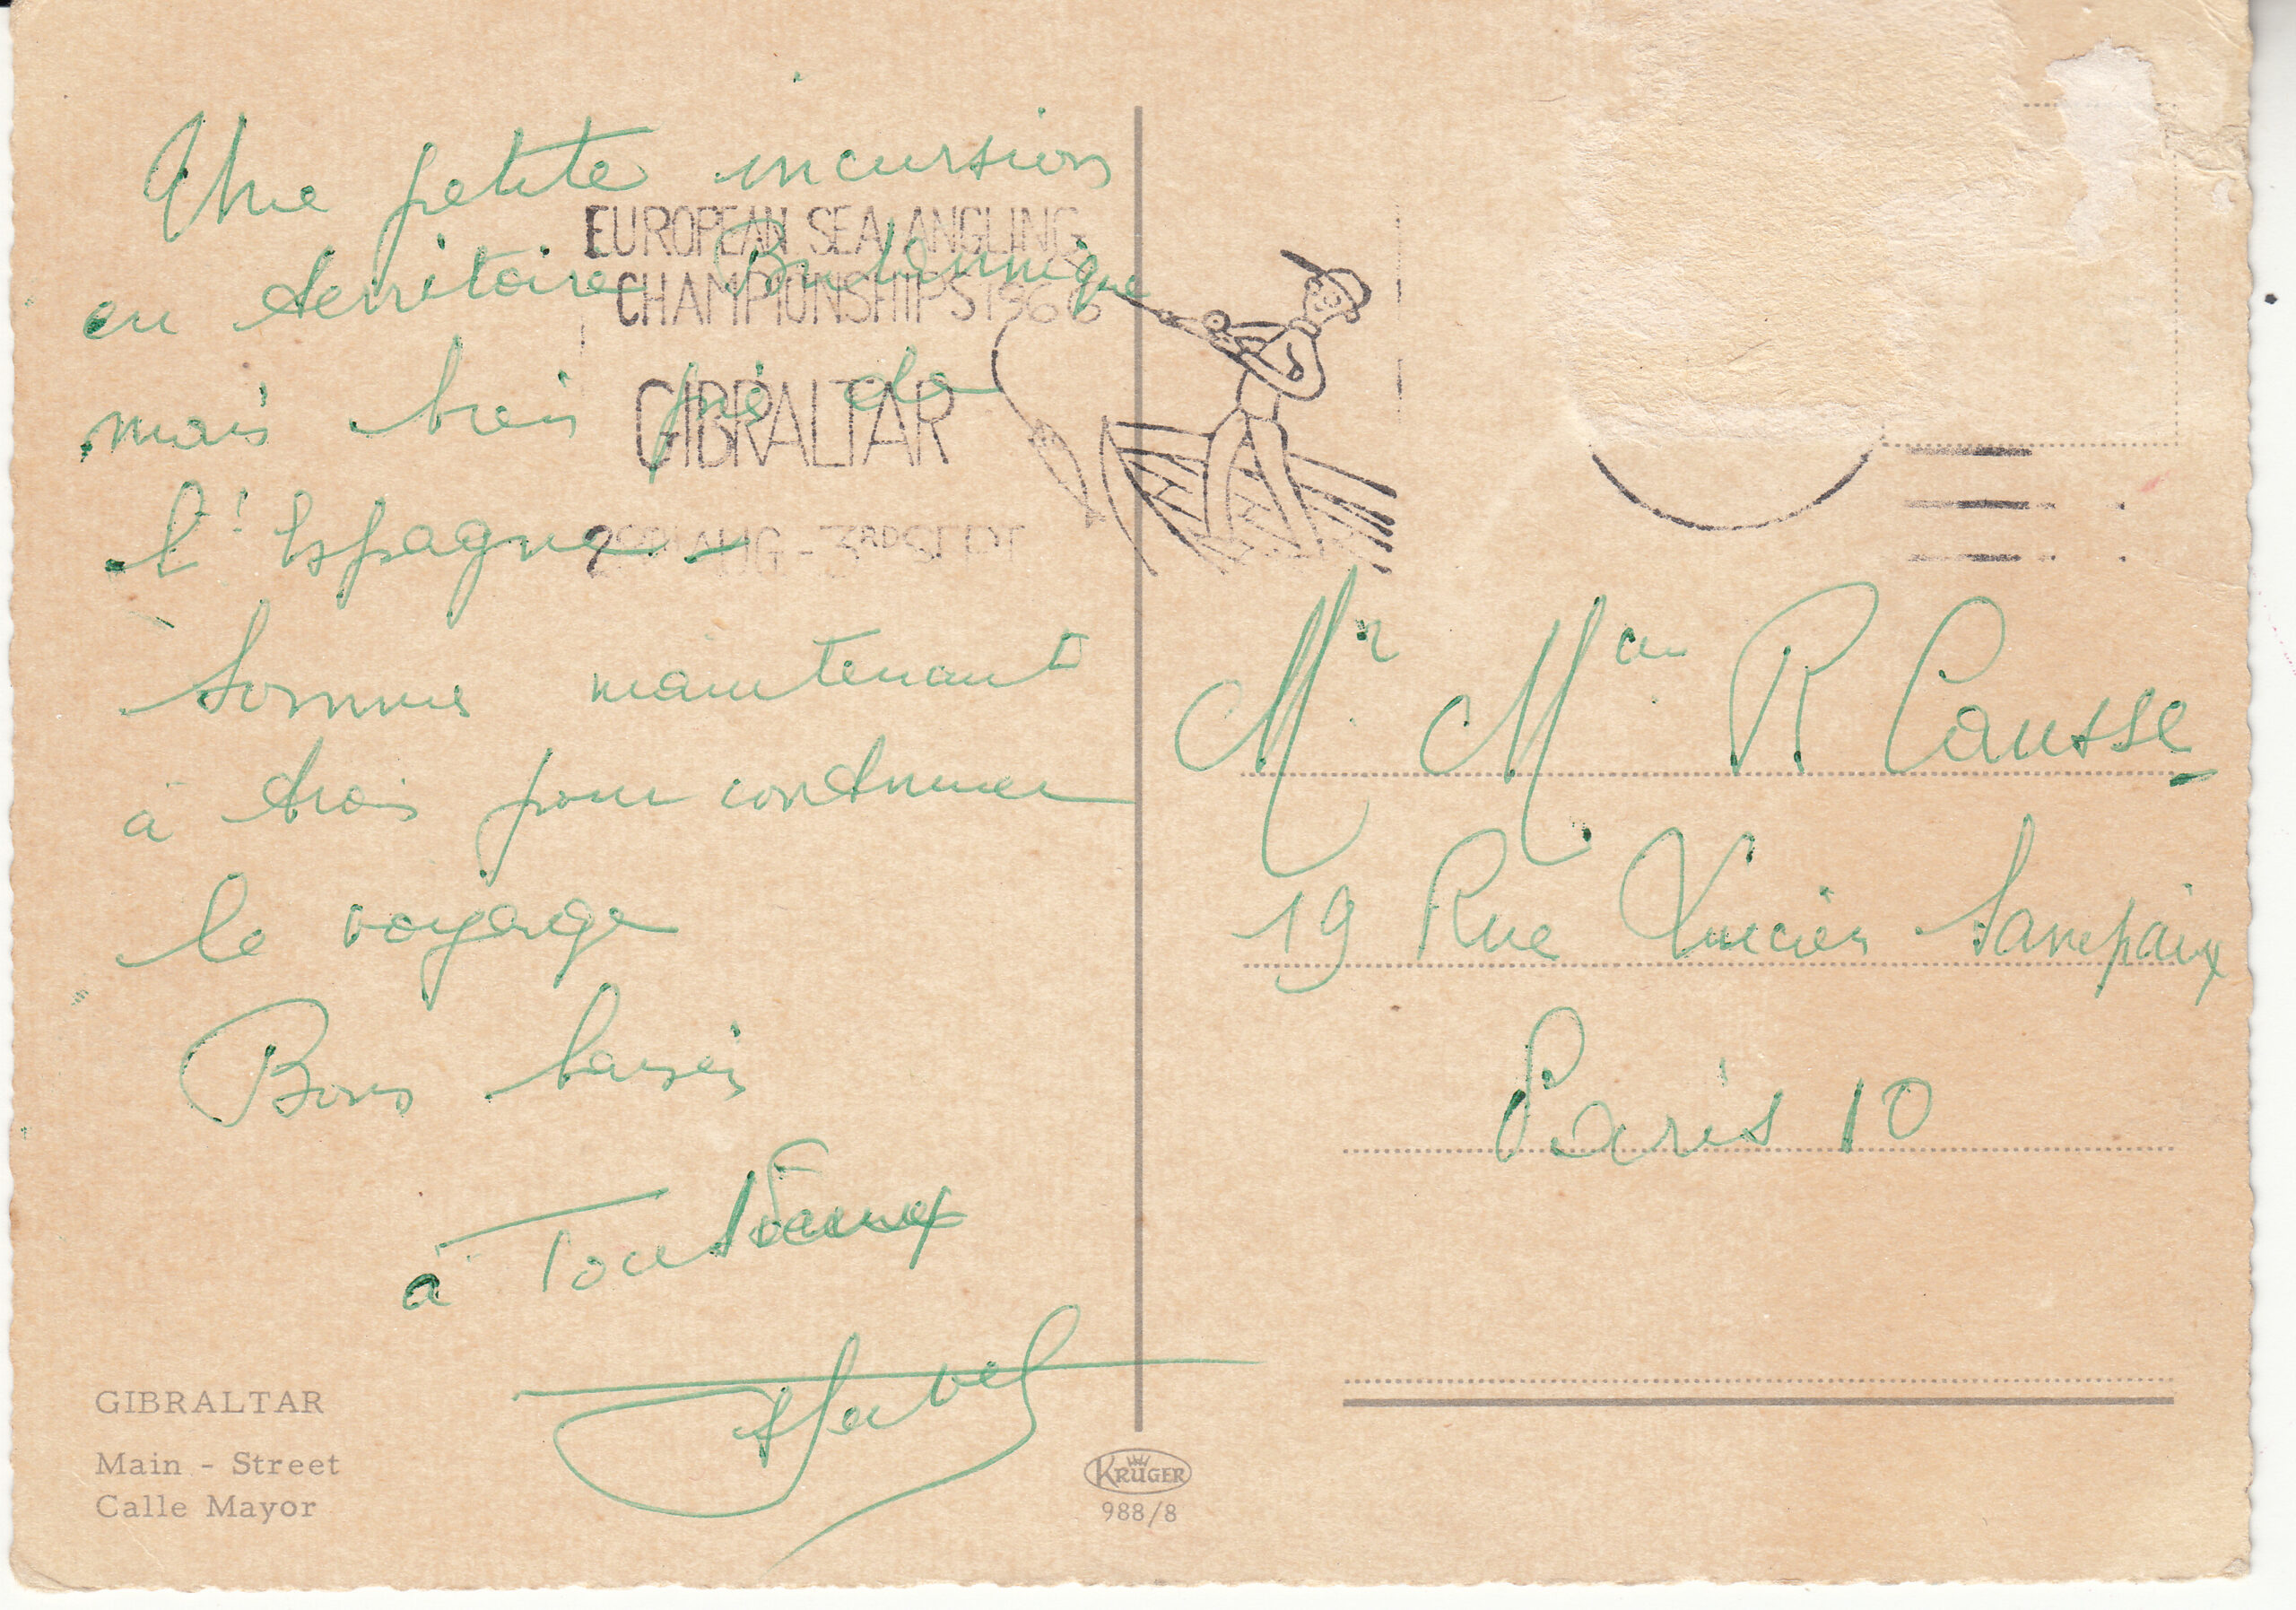 Une petite incursion
en territoire Britannique
mais bien près de
l'Espagne -
Sommes maintenant
à trois pour continuer
le voyage
Bons baisers
à Tous deux
EUROPEAN SEA ANGLING
CHAMPIONSHIPS 1966
GIBRALTAR
AUG - 3RD SEPT
Mr Mme R Causse
19 Rue Lucien Sampaix
Paris 10
GIBRALTAR
Main - Street
Calle Mayor
KRÜGER
988/8